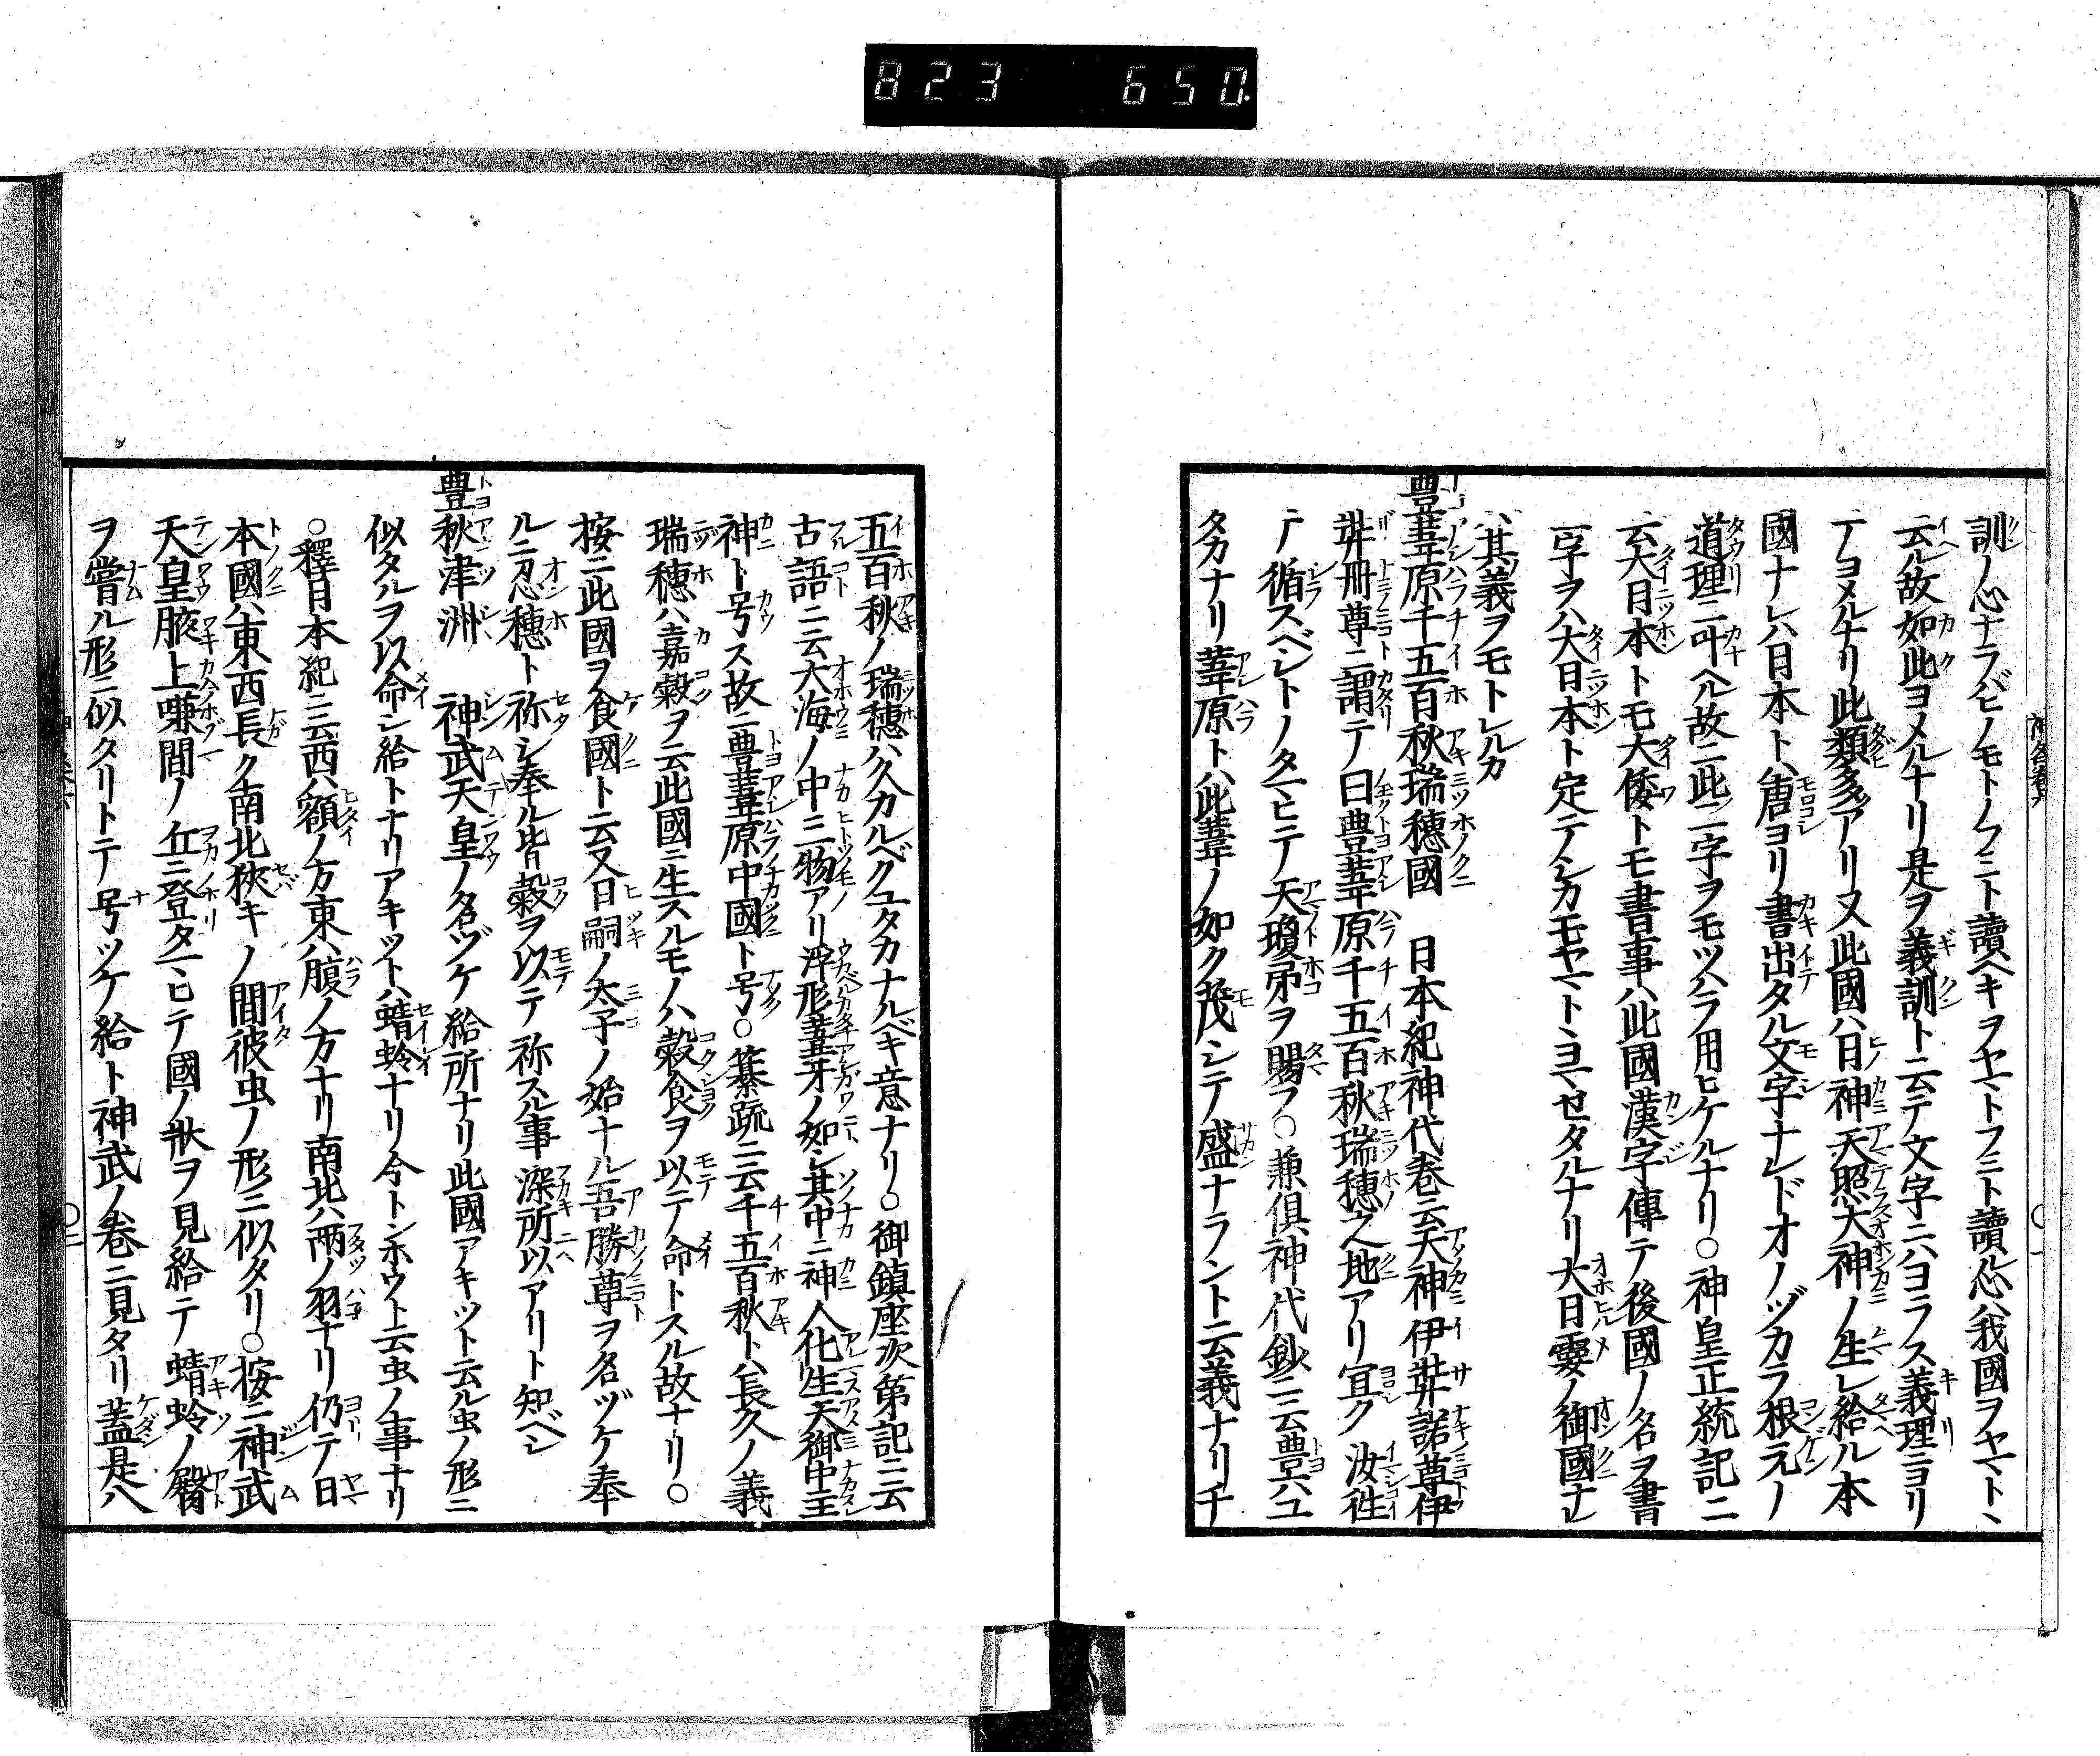 823 650.
訓ノ心ナラバヒノモトノクニト讀ヘキヲヤマトフミト讀心ハ我國ヲヤマトヽ
云ル故如此ヨメルナリ是ヲ義訓ト云テ文字ニハヨラス義理ニヨリ
テヨメルナリ此類多アリ又此國ハ日神天照大神ノ生レ給ル本
國ナレハ日本トハ唐ヨリ書出タル文字ナレドオノヅカラ根元ノ
道理ニ叶ヘル故ニ此二字ヲモツハラ用ヒケルナリ○神皇正統記ニ
云大日本トモ大倭トモ書事ハ此國漢字傳テ後國ノ名ヲ書
字ヲハ大日本ト定テシカモヤマトヨマセタルナリ大日孁ノ御國ナレ
ハ其義ヲモトレルカ
豊葦原千五百秋瑞穂國 日本紀神代巻云天神伊弉諾尊伊
弉冊尊ニ謂テ曰豊葦原千五百秋瑞穂之地アリ宜ク汝徃
テ循スベシトノタマヒテ天瓊矛ヲ賜フ○兼倶神代鈔ニ云豊ハユ
タカナリ葦原トハ此葦ノ如ク茂シテ盛ナラント云義ナリ千
五百秋ノ瑞穂ハ久カルベクユタカナルベキ意ナリ○御鎮座次第記ニ云
古語ニ云大海ノ中ニ一物アリ浮形葦牙ノ如シ其中ニ神人化生天御中主
神ト号ス故ニ豊葦原中國ト号○纂疏ニ云千五百秋トハ長久ノ義
瑞穂ハ嘉穀ヲ云此國ニ生スルモノハ穀食ヲ以テ命トスル故ナリ○
按ニ此國ヲ食國ト云又日嗣ノ太子ノ始ナル吾勝尊ヲ名ヅケ奉
ルニ忍穂ト祢シ奉ル皆穀ヲ以テ祢スル事深所以アリト知ベシ
豊秋津洲 神武天皇ノ名ヅケ給所ナリ此國アキツト云ル虫ノ形ニ
似タルヲ以命シ給トナリアキツトハ蜻蛉ナリ今トンホウト云虫ノ事ナリ
○釋日本紀ニ云西ハ額ノ方東ハ腹ノ方ナリ南北ハ両ノ羽ナリ仍テ日
本國ハ東西長ク南北狭キノ間彼虫ノ形ニ似タリ○按ニ神武
天皇腋上嗛間ノ丘ニ登タマヒテ國ノ状ヲ見給テ蜻蛉ノ臀
ヲ嘗ル形ニ似タリトテ号ツケ給ト神武ノ巻ニ見タリ蓋是八